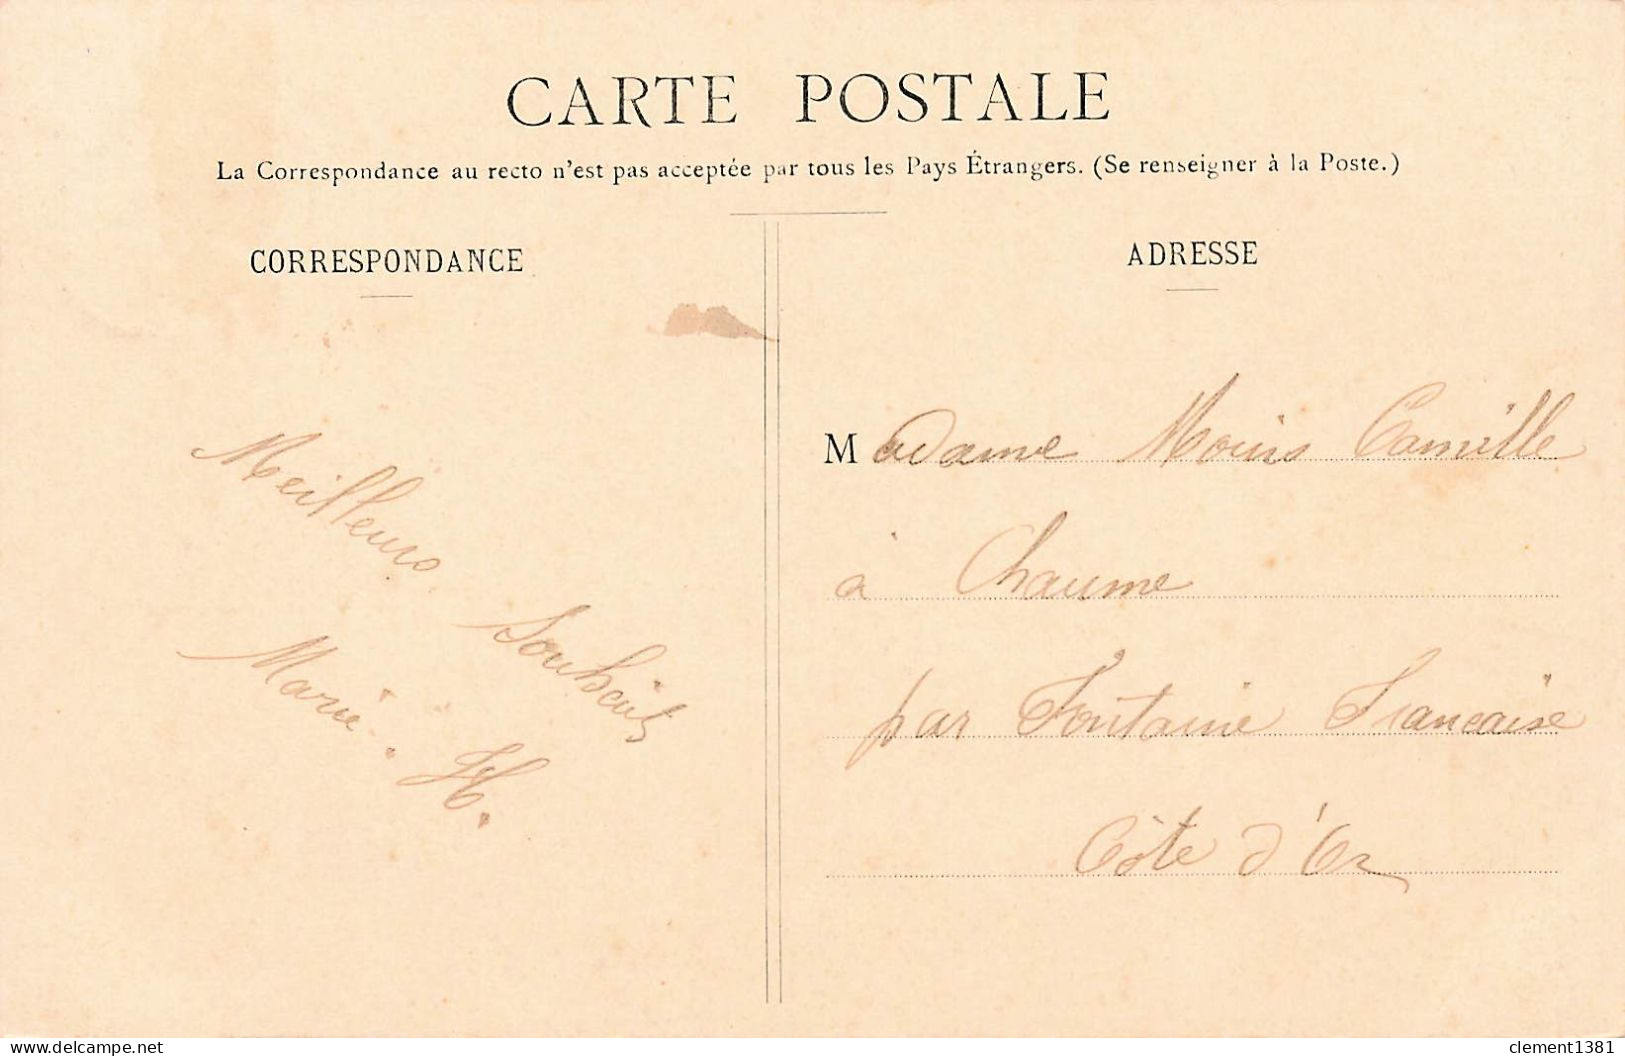 CARTE POSTALE
La Correspondance au recto n'est pas acceptée par tous les Pays Étrangers. (Se renseigner à la Poste.)
CORRESPONDANCE
Meilleurs Souhaits
Marie. H.
ADRESSE
Madame Moins Camille
à Chaume
par Fontaine Francaise
Côte d'Or
www.delcampe.net
clement1381